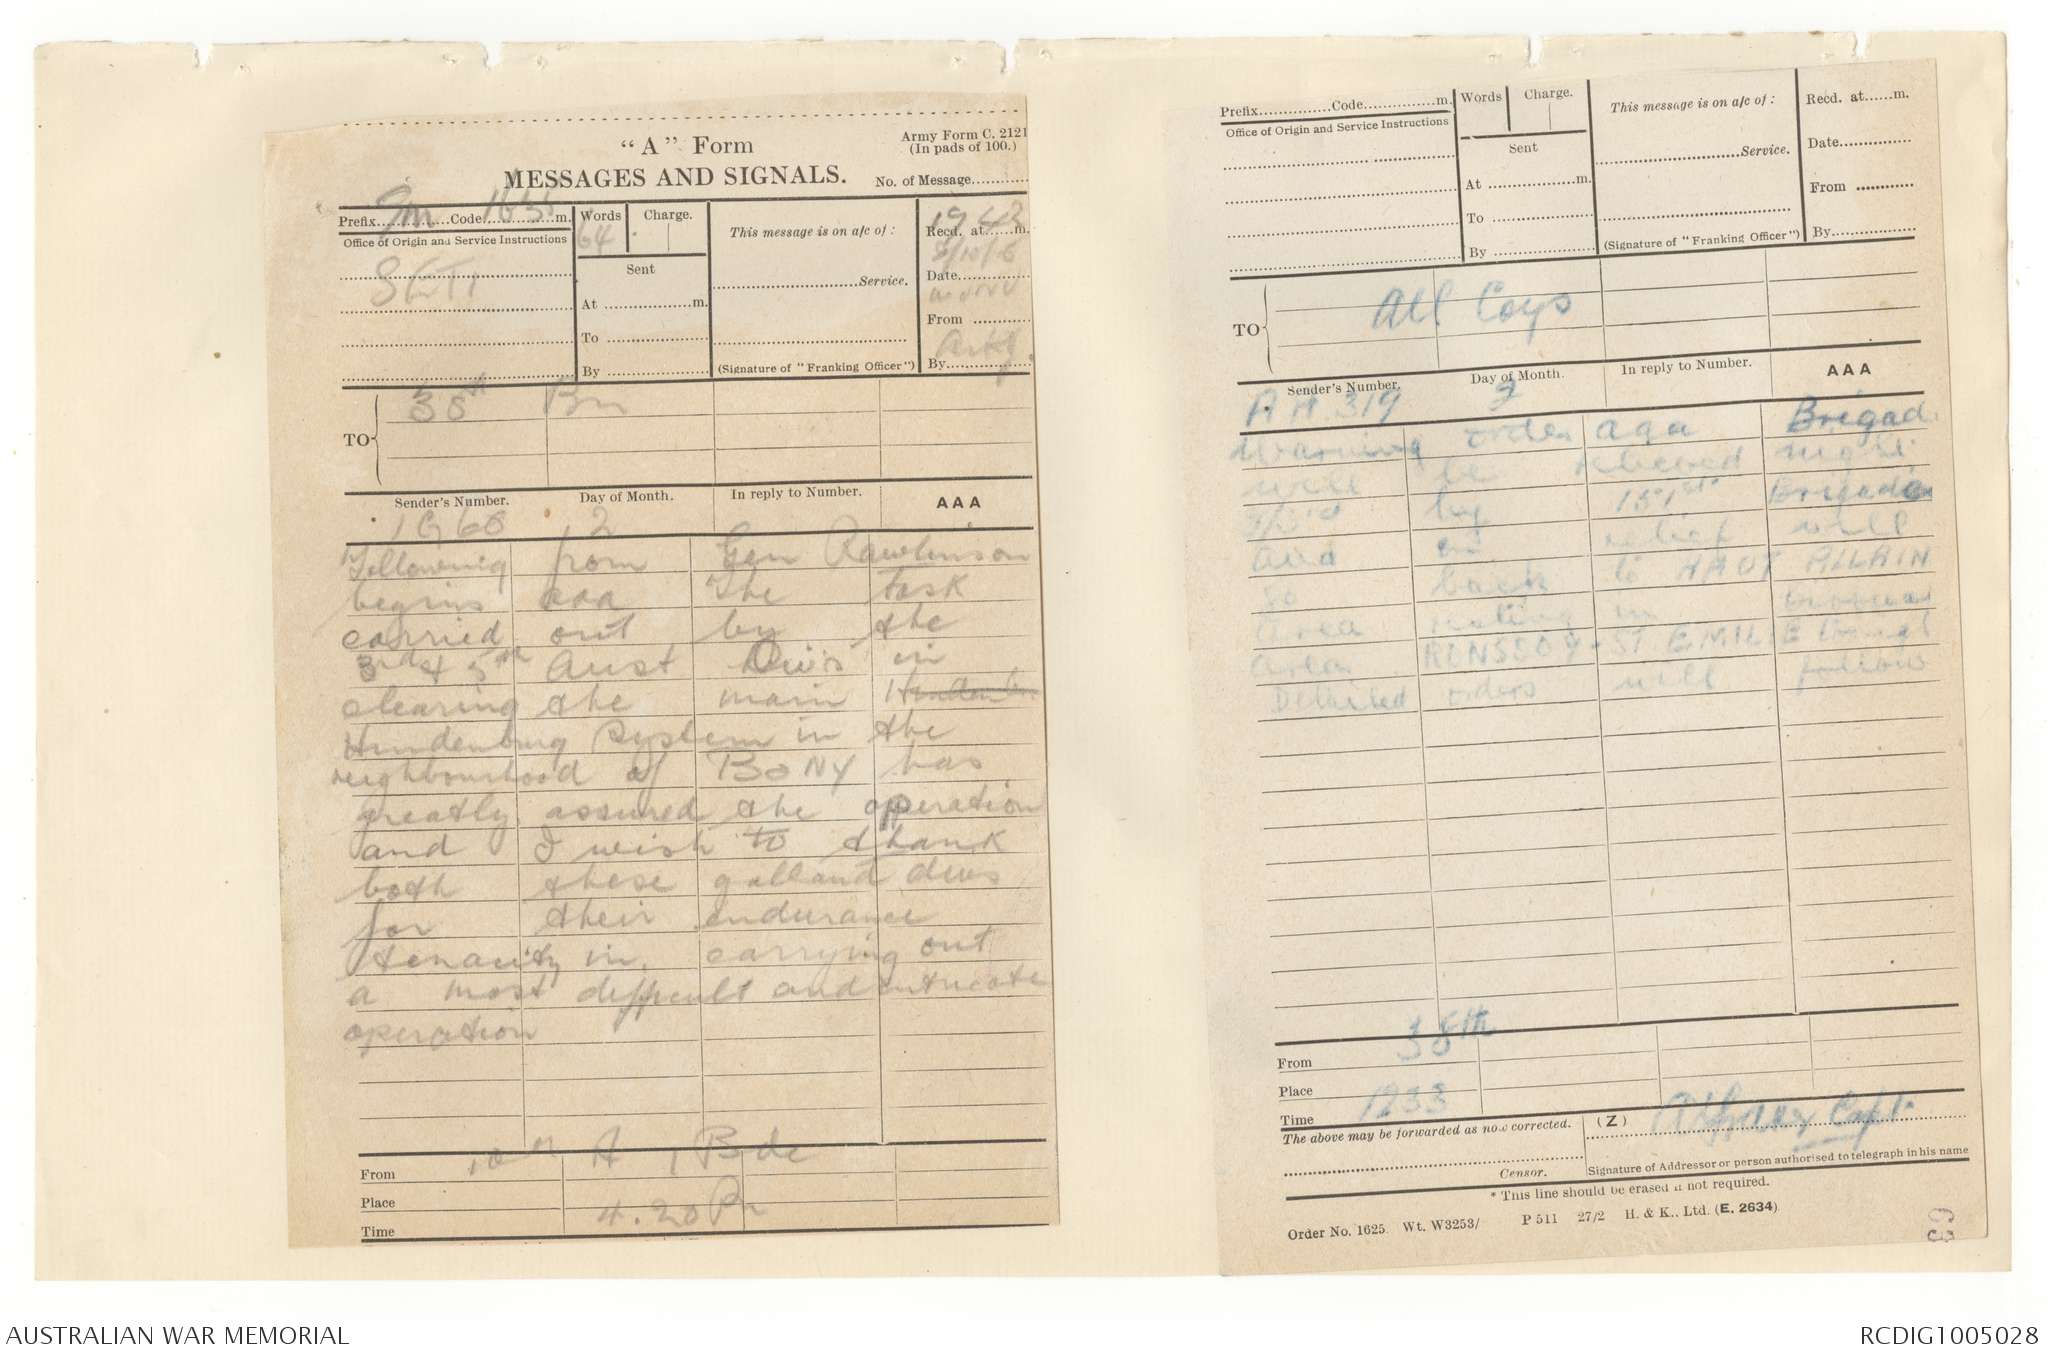 "A" Form
Army Form C. 2121
(In pads of 100.)
MESSAGES AND SIGNALS.
No. of Message............
Prefix............Code............m.
Sm 1635
Words
64
Charge.
This message is on a/c of :
1942
Recd. at......m.
Office of Origin and Service Instructions
Sent
Service.
Date............
At ............m.
From ............
To ............
By ............
(Signature of "Franking Officer")
By............
TO
38th Bn
Sender's Number.
Day of Month.
In reply to Number.
AAA
1G 60 2
Following from Gen Rawlinson
begins aaa The task
carried out by the
3rd & 5th Aust Divs in
clearing the main Hindenbu
Hindenburg System in the
neighbourhood of BONY has
greatly assured the operation
and I wish to thank
both these galland divs
for their endurance
tenacity in carrying out
a most difficult and intricate
operation
From
10th A I Bde
Place
Time
4.20 Pm
Prefix............Code............m.
Words
Charge.
This message is on a/c of :
Recd. at......m.
Office of Origin and Service Instructions
Sent
Service.
Date............
At ............m.
From ............
To ............
By ............
(Signature of "Franking Officer")
By............
TO
All Coys
Sender's Number.
Day of Month.
In reply to Number.
AAA
AH 319 2
Warning order aaa Brigade
will be relieved night
2/3rd by 151st Brigade
and on relief will
go back to HAUT ALLAIN
Area resting in
area RONSSOY - ST. EMILIE
Detailed orders will follow
From
38th
Place
Time
1233
The above may be forwarded as now corrected.
(Z)
Capt.
Censor.
Signature of Addressor or person authorised to telegraph in his name
* This line should be erased if not required.
Order No. 1625. Wt. W3253/ P 511 27/2 H. & K., Ltd. (E. 2634)
63
AUSTRALIAN WAR MEMORIAL
RCDIG1005028